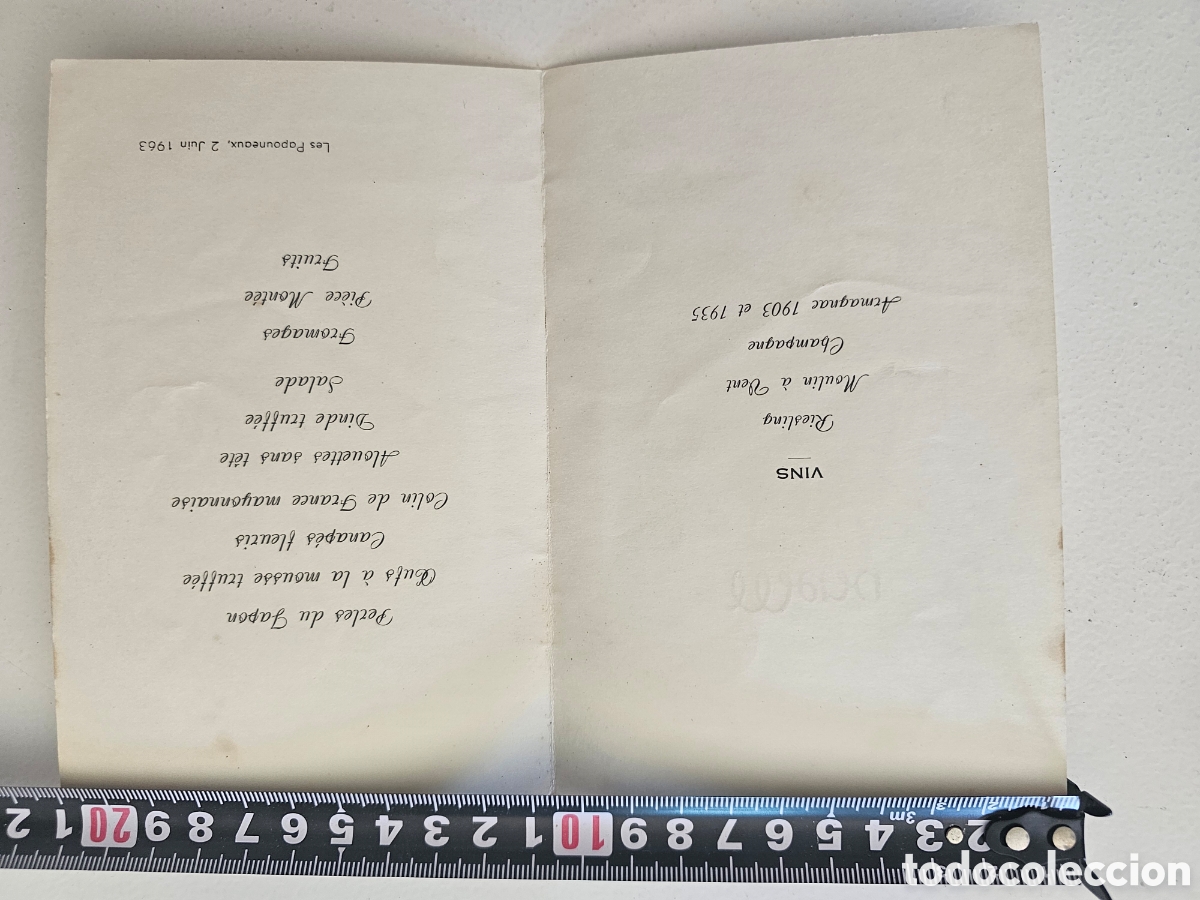 VINS
Riesling
Moulin à Vent
Champagne
Armagnac 1903 et 1935
Perles du Japon
Œufs à la mousse truffée
Canapés fleuris
Colin de France mayonnaise
Alouettes sans tête
Dinde truffée
Salade
Fromages
Pièce Montée
Fruits
Les Papouneaux, 2 Juin 1963
2 1 20 9 8 7 6 5 4 3 2 1 10 9 8 7 6 5 4 3 2
3m
todocoleccion